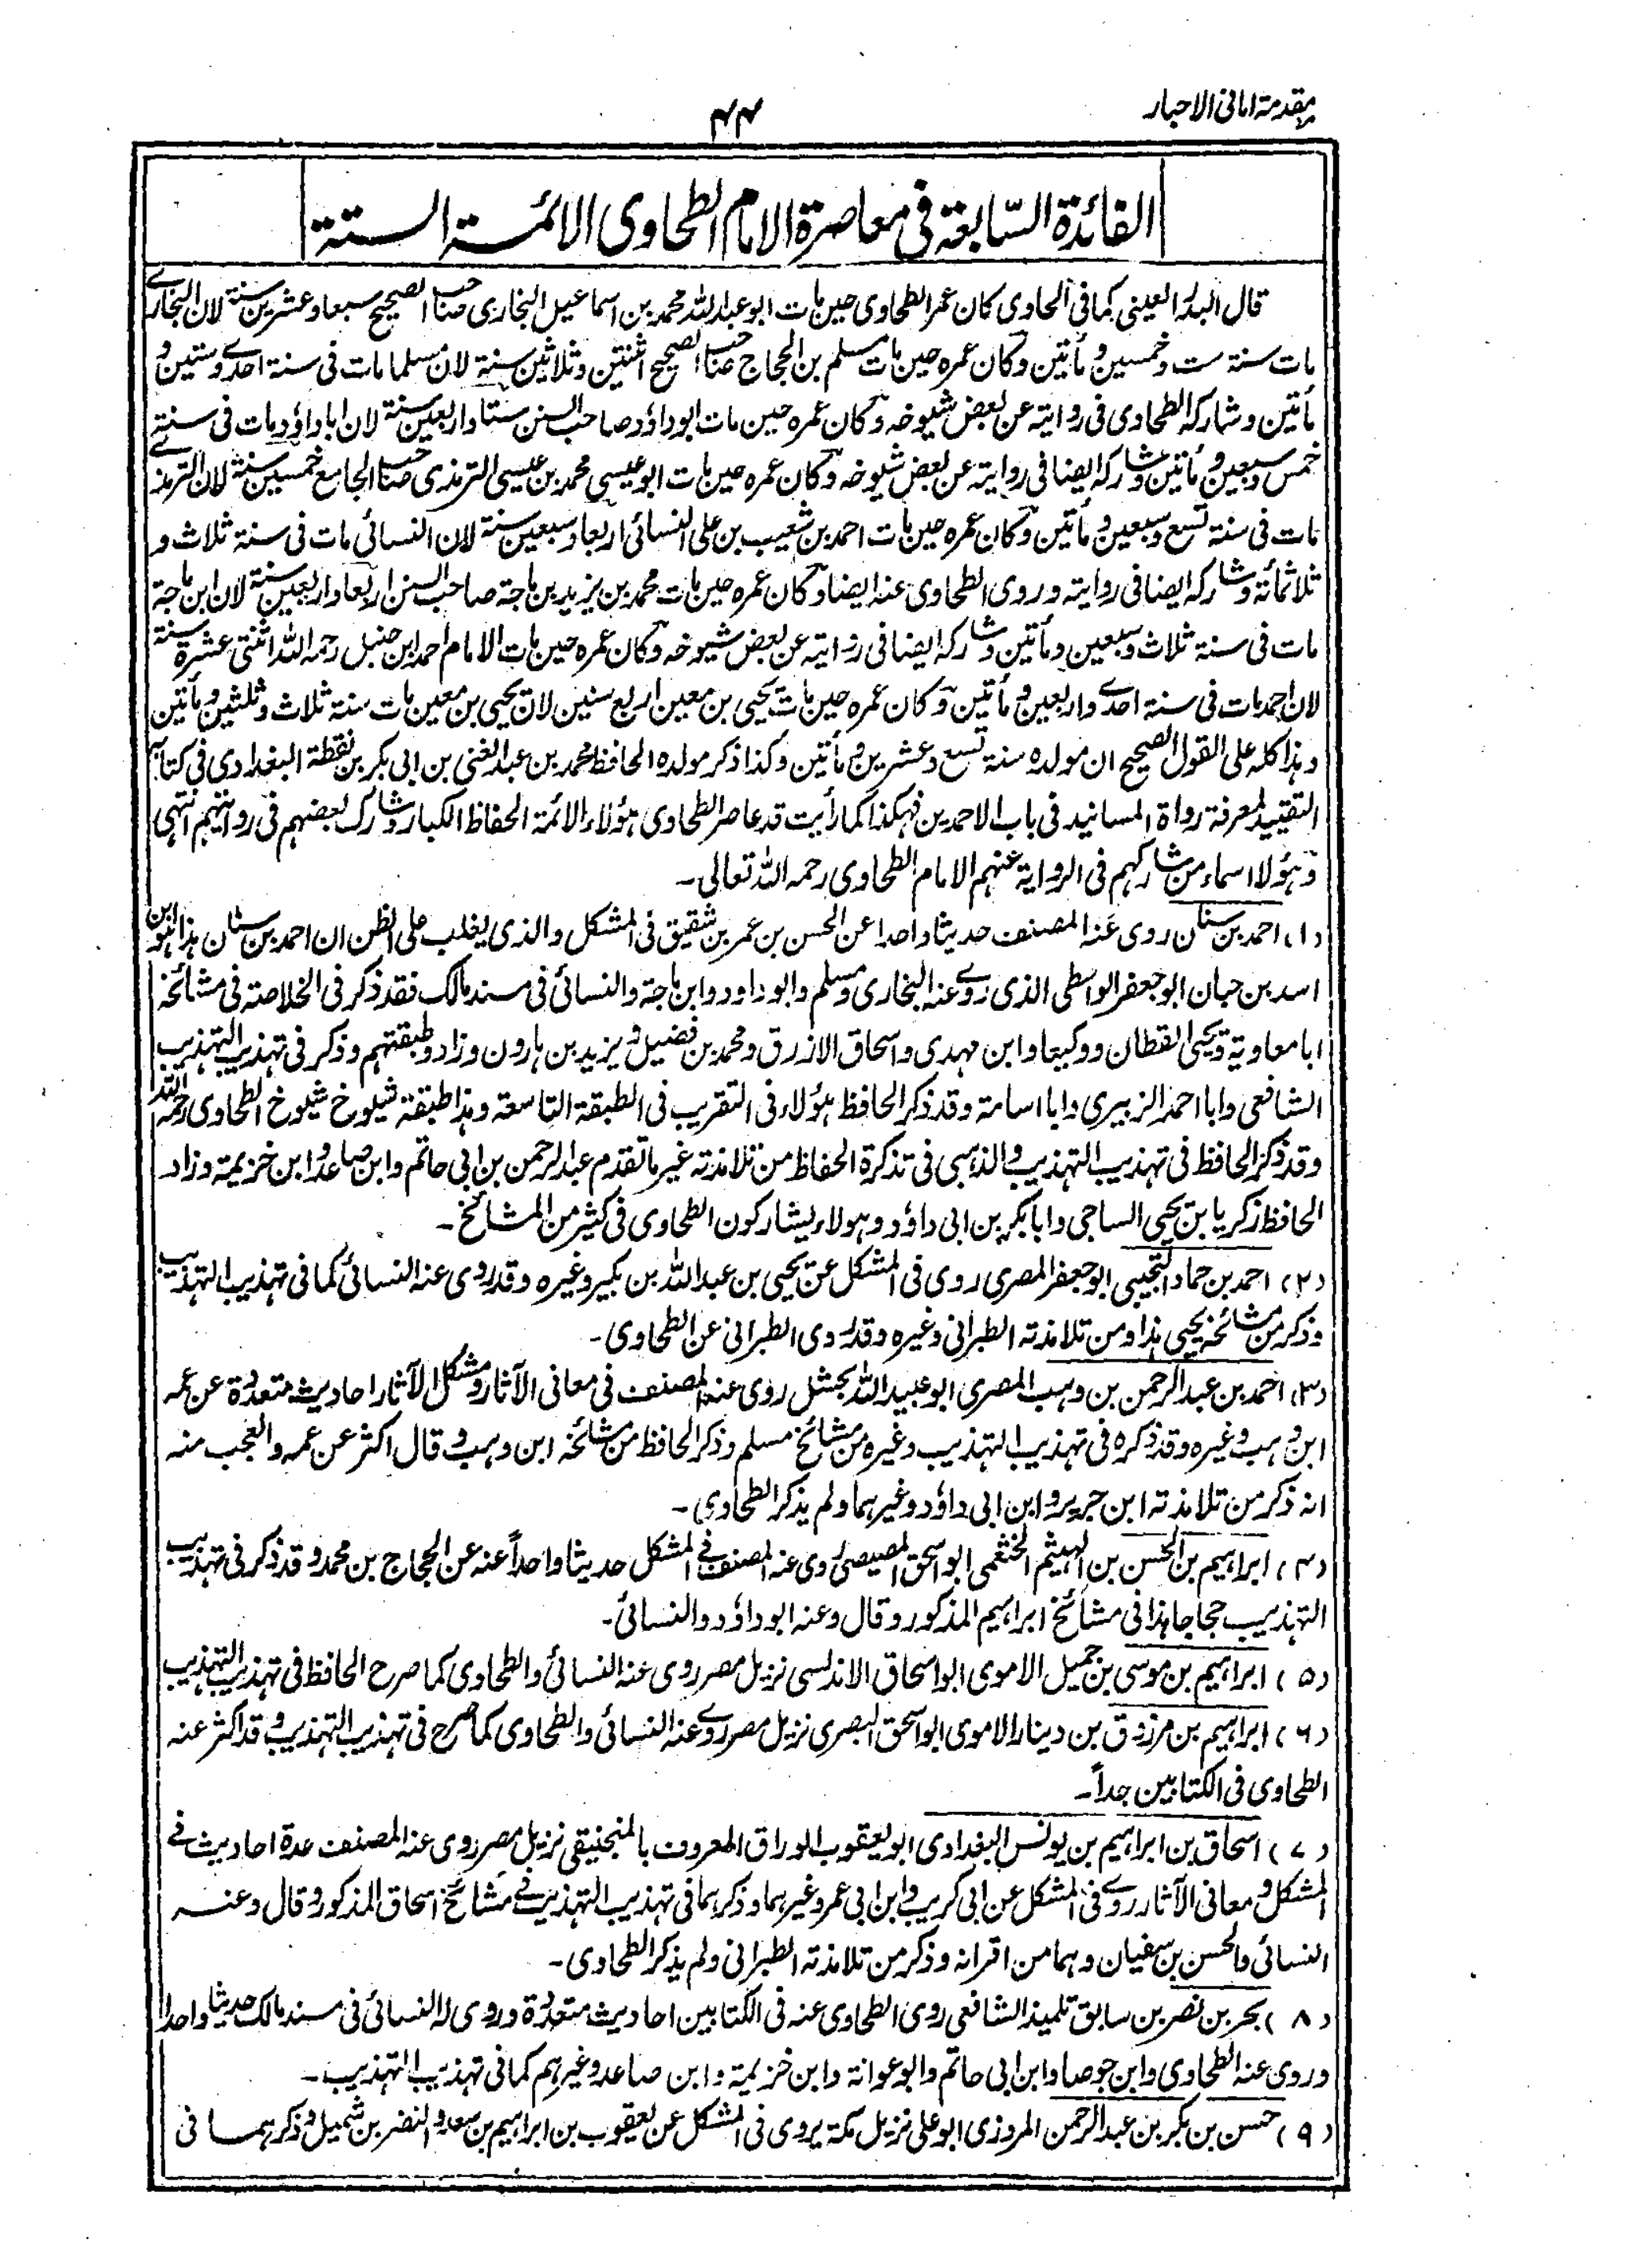 مقدمة امانى الاحبار
٤٤
الفائدة السّابعة فى معاصرة الامام الطحاوى الائمة الستة
قال البدر العينى كما فى الحاوى كان عمر الطحاوى حين مات ابو عبد الله محمد بن اسماعيل البخارى صاحب الصحيح سبعا وعشرين سنة لان البخارى
مات سنة ست وخمسين ومأتين وكان عمره حين مات مسلم بن الحجاج صاحب الصحيح اثنتين وثلاثين سنة لان مسلما مات فى سنة احدى وستين و
مأتين وشاركه الطحاوى فى روايته عن بعض شيوخه وكان عمره حين مات ابو داؤد صاحب السنن ستا واربعين سنة لان ابا داؤد مات فى سنة
خمس وسبعين ومأتين وشاركه ايضا فى روايته عن بعض شيوخه وكان عمره حين مات ابو عيسى محمد بن عيسى الترمذى صاحب الجامع خمسين سنة لان الترمذى
مات فى سنة تسع وسبعين ومأتين وكان عمره حين مات احمد بن شعيب بن على النسائى اربعا وسبعين سنة لان النسائى مات فى سنة ثلاث و
ثلاثمائة وشاركه ايضا فى روايته وروى الطحاوى عنه ايضا وكان عمره حين مات محمد بن يزيد بن ماجة صاحب السنن اربعا واربعين سنة لان ابن ماجة
مات فى سنة ثلاث وسبعين ومأتين وشاركه ايضا فى روايته عن بعض شيوخه وكان عمره حين مات الامام احمد ابن حنبل رحمه الله اثنتى عشرة سنة
لان احمد مات فى سنة احدى واربعين ومأتين وكان عمره حين مات يحيى بن معين اربع سنين لان يحيى بن معين مات سنة ثلاث وثلثين ومأتين
وهذا كله على القول الصحيح ان مولده سنة تسع وعشرين ومأتين وكذا ذكر مولده الحافظ محمد بن عبد الغنى بن ابى بكر بن نقطة البغدادى فى كتابه
التقييد لمعرفة رواة المسانيد فى باب الاحمدين فهكذا كما رأيت قد عاصر الطحاوى هؤلاء الائمة الحفاظ الكبار وشارك بعضهم فى روايتهم انتهى
وهؤلاء اسماء من شاركهم فى الرواية عنهم الامام الطحاوى رحمه الله تعالى۔
(١) احمد بن سنان روى عنه المصنف حديثا واحدا عن الحسن بن عمر بن شقيق فى المشكل والذى يغلب على الظن ان احمد بن سنان هذا هو ابن
اسد بن حبان ابو جعفر الواسطى الذى روى عنه البخارى ومسلم وابو داود وابن ماجة والنسائى فى مسند مالك فقد ذكر فى الخلاصة فى مشائخه
ابا معاوية ويحيى القطان ووكيعا وابن مهدى واسحاق الازرق ومحمد بن فضيل ويزيد بن هارون وزاد وطبقتهم وذكر فى تهذيب التهذيب
الشافعى وابا احمد الزبيرى وابا اسامة وقد ذكر الحافظ هؤلاء فى التقريب فى الطبقة التاسعة وهذا طبقة شيوخ شيوخ الطحاوى رحمه الله
وقد ذكر الحافظ فى تهذيب التهذيب والذهبى فى تذكرة الحفاظ من تلامذته غير ما تقدم عبد الرحمن بن ابى حاتم وابن صاعد وابن خزيمة وزاد
الحافظ زكريا بن يحيى الساجى وابا بكر بن ابى داؤد وهولاء يشاركون الطحاوى فى كثير من المشائخ۔
(٢) احمد بن حماد التجيبى ابو جعفر المصرى روى فى المشكل عن يحيى بن عبد الله بن بكير وغيره وقد روى عنه النسائى كما فى تهذيب التهذيب
وذكر من مشائخه يحيى هذا ومن تلامذته الطبرانى وغيره وقد روى الطبرانى عن الطحاوى۔
(٣) احمد بن عبد الرحمن بن وهب المصرى ابو عبيد الله بحشل روى عنه المصنف فى معانى الآثار ومشكل الآثار احاديث متعددة عن عمه
ابن وهب وغيره وقد ذكره فى تهذيب التهذيب وغيره من مشائخ مسلم وذكر الحافظ من مشائخه ابن وهب وقال اكثر عن عمه والعجب منه
انه ذكر من تلامذته ابن جرير وابن ابى داؤد وغيرهما ولم يذكر الطحاوى۔
(٤) ابراهيم بن الحسن بن الهيثم الخثعمى ابو اسحق المصيصى روى عنه المصنف فى المشكل حديثا واحداً عنه عن الحجاج بن محمد وقد ذكر فى تهذيب
التهذيب حجاجا هذا فى مشائخ ابراهيم المذكور وقال وعنه ابو داؤد والنسائى۔
(٥) ابراهيم بن موسى بن جميل الاموى ابو اسحاق الاندلسى نزيل مصر روى عنه النسائى والطحاوى كما صرح الحافظ فى تهذيب التهذيب
(٦) ابراهيم بن مرزوق بن دينار الاموى ابو اسحق البصرى نزيل مصر روى عنه النسائى والطحاوى كما صرح فى تهذيب التهذيب وقد اكثر عنه
الطحاوى فى الكتابين جداً۔
(٧) اسحاق بن ابراهيم بن يونس البغدادى ابو يعقوب الوراق المعروف بالمنجنيقى نزيل مصر روى عنه المصنف عدة احاديث فى
المشكل ومعانى الآثار روى فى المشكل عن ابى كريب وابن ابى عمر وغيرهما وذكرهما فى تهذيب التهذيب فى مشائخ اسحاق المذكور وقال وعنه
النسائى والحسن بن سفيان وهما من اقرانه وذكر من تلامذته الطبرانى ولم يذكر الطحاوى۔
(٨) بحر بن نصر بن سابق تلميذ الشافعى روى الطحاوى عنه فى الكتابين احاديث متعددة وروى له النسائى فى مسند مالك حديثا واحدا
وروى عنه الطحاوى وابن جوصا وابن ابى حاتم وابو عوانة وابن خزيمة وابن صاعد وغيرهم كما فى تهذيب التهذيب۔
(٩) حسن بن بكر بن عبد الرحمن المروزى ابو على نزيل مكة يروى فى المشكل عن يعقوب بن ابراهيم بن سعد والنضر بن شميل وذكرهما فى